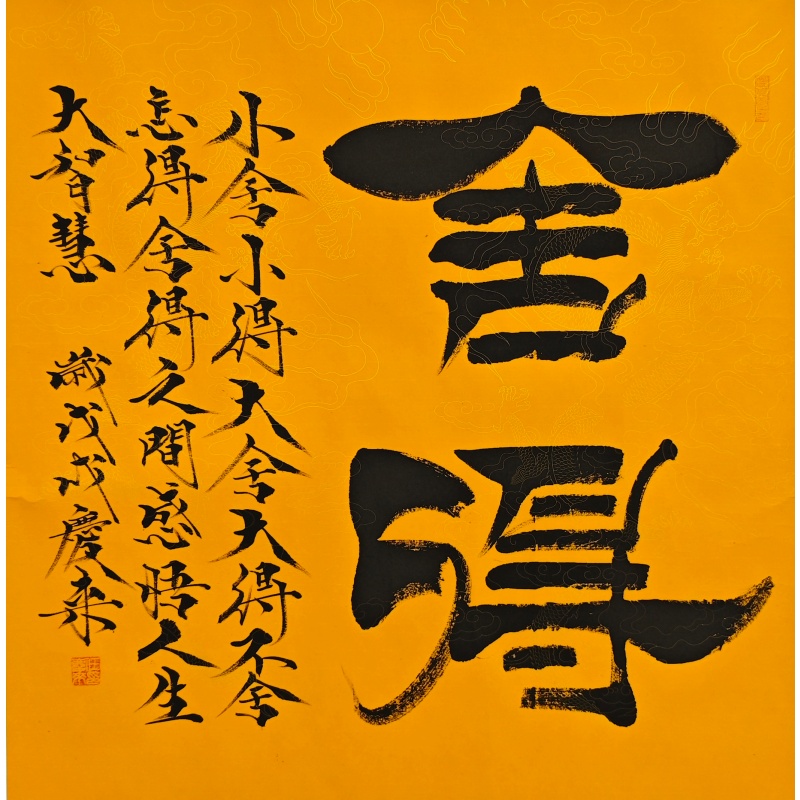 舍
得
小舍小得大舍大得不舍
怎得舍得之間感悟人生
大智慧
歲戊戌慶来